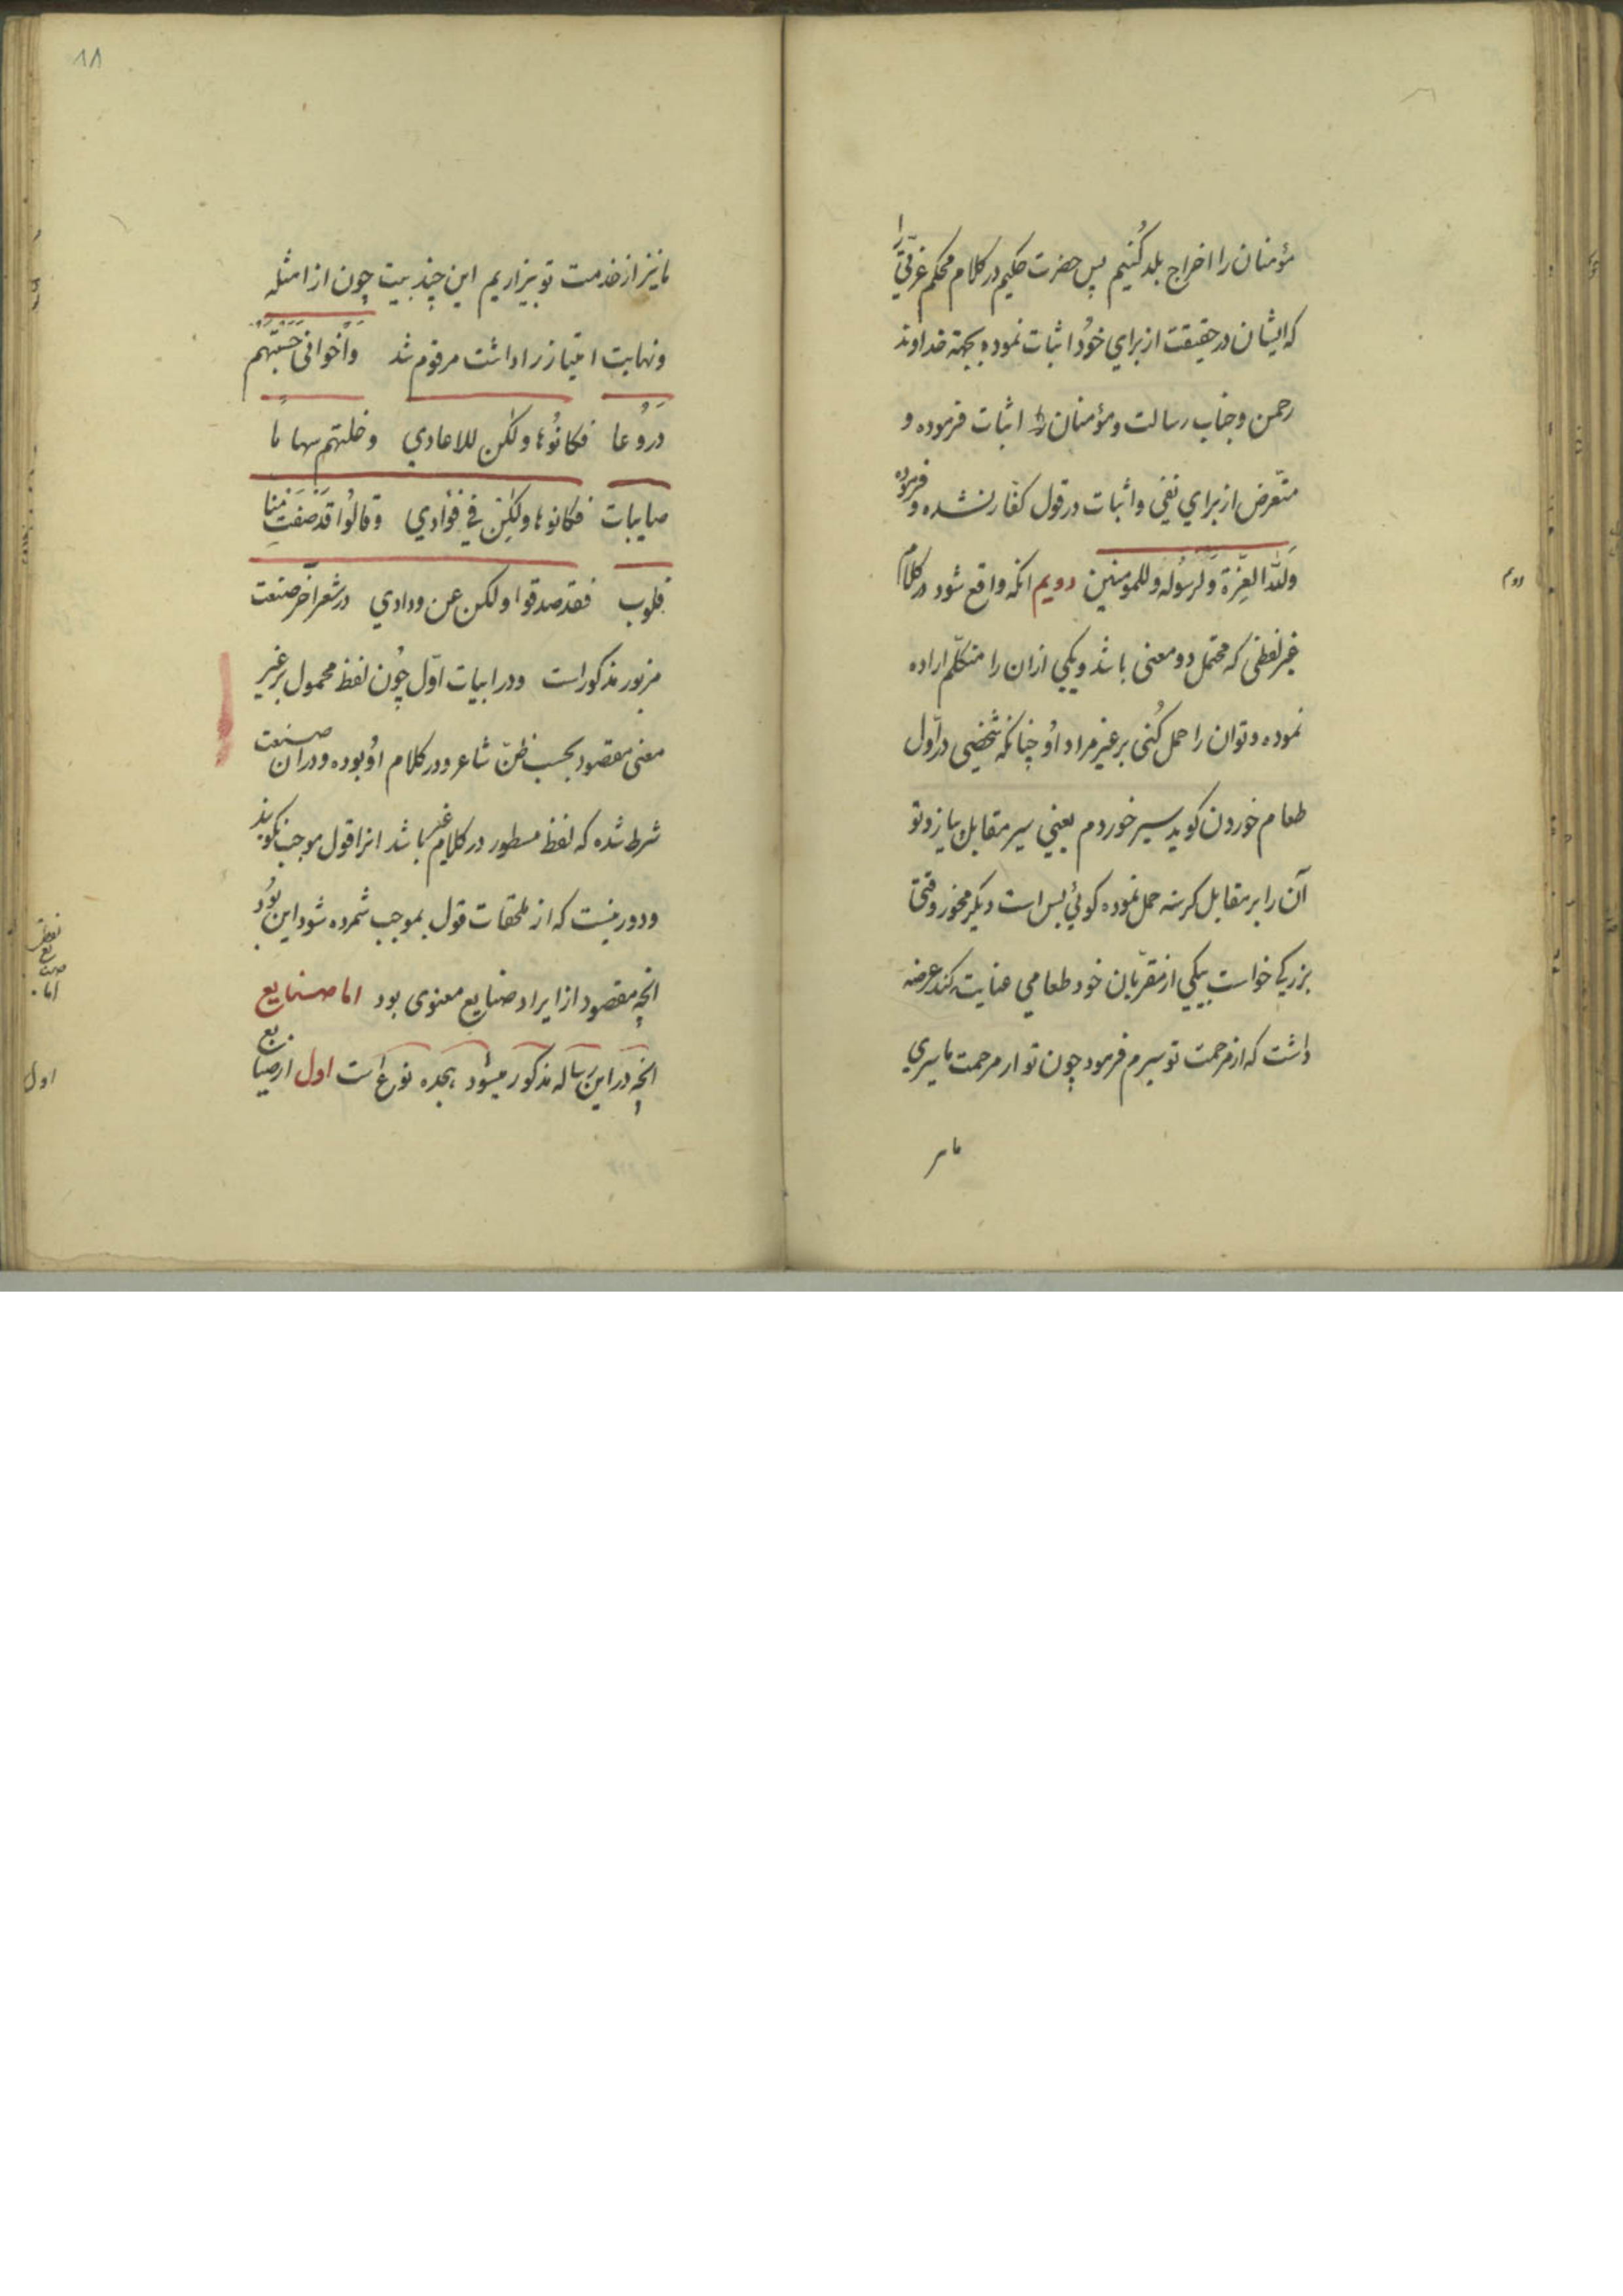 مؤمنان را اخراج بلد کُنیم پس حضرت حکیم در کلام محکم عزّتی را
که ایشان در حقیقت از برای خوُد اثبات نموده بجهة خداوند
رحمن و جناب رسالت و مؤمنان را اثبات فرموده و
متعرض از برای نفی و اثبات در قول کفّار نشده و فرموده
وَلله العِزّة وَلرسُوله وللمومنین دویم انکه واقع شود در کلام
غیر لفظی که محتمل دو معنی باشد و یکی از ان را متکلّم اراده
نموده و تو ان را حمل کُنی بر غیر مراد اوُ چنانکه شخصی در اوّل
طعام خوردن کوید سیر خوردم یعنی سیر مقابل پیاز و تو
آن را بر مقابل کرسنه حمل نموده کوئی بس است دیکر مخور وقتی
بزرکی خواست بیکی از مقرّبان خود طعامی عنایت کند عرضه
داشت که از مرحمت تو سیرم فرمود چون تو از مرحمت ما سیری
ما نیز
دویم
۱۸
ما نیز از خدمت تو بیزاریم این چند بیت چون از امثله
و نهایت امتیاز را داشت مرقوم شد واخوانی حسبتهم
دروُعا فکانوُها ولکن للاعادی وخلتهم سهاما
صایبات فکانوها ولکِن فی فؤادی وقالوُا قد صفت منّا
قلوب فقد صدقوا ولکن عن ودادی در شعر آخر صنعت
مزبور مذکور است و در ابیات اوّل چوُن لفظ محمول بر غیر
معنی مقصود بحسب ظنّ شاعر و در کلام اوُ بوده و در ان صنعت
شرط شده که لفظ مسطور در کلام غیر باشد انرا قول بموجب نکویند
و دور نیست که از ملحقات قول بموجب شمرده شود این بوُد
انچه مقصود از ایراد صنایع معنوی بود اما صنایع
انچه در این رساله مذکور میشود هجده نوع است اول از صنایع
اما صنایع لفظی
اول